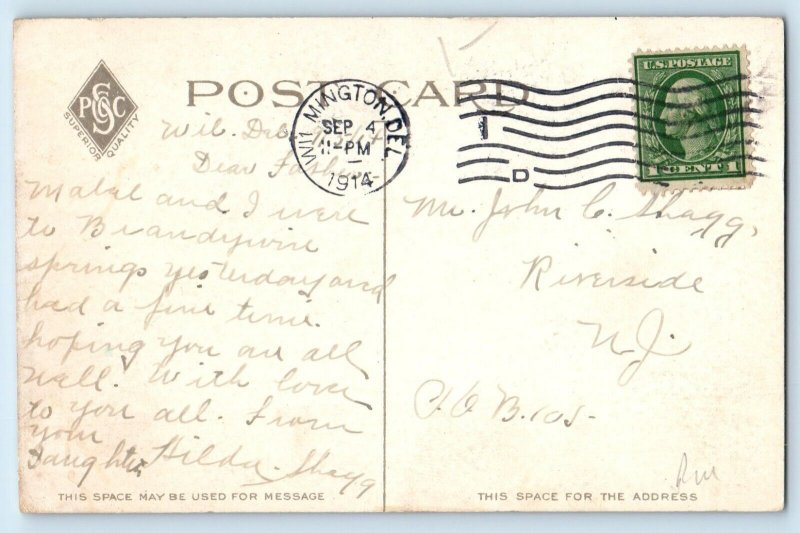 POST CARD
PCSCO
SUPERIOR QUALITY
WILMINGTON, DEL
SEP 4
11-PM
1914
1
D
U.S. POSTAGE
1 CENT 1
Wil. Del.
Dear Father
Mabel and I were
to Brandywine
springs yesterday and
had a fine time.
hoping you are all
well. With love
to you all. From
your
daughter Hilda Shagg
Mr. John C. Shagg,
Riverside
N J.
B. 105-
THIS SPACE MAY BE USED FOR MESSAGE
THIS SPACE FOR THE ADDRESS